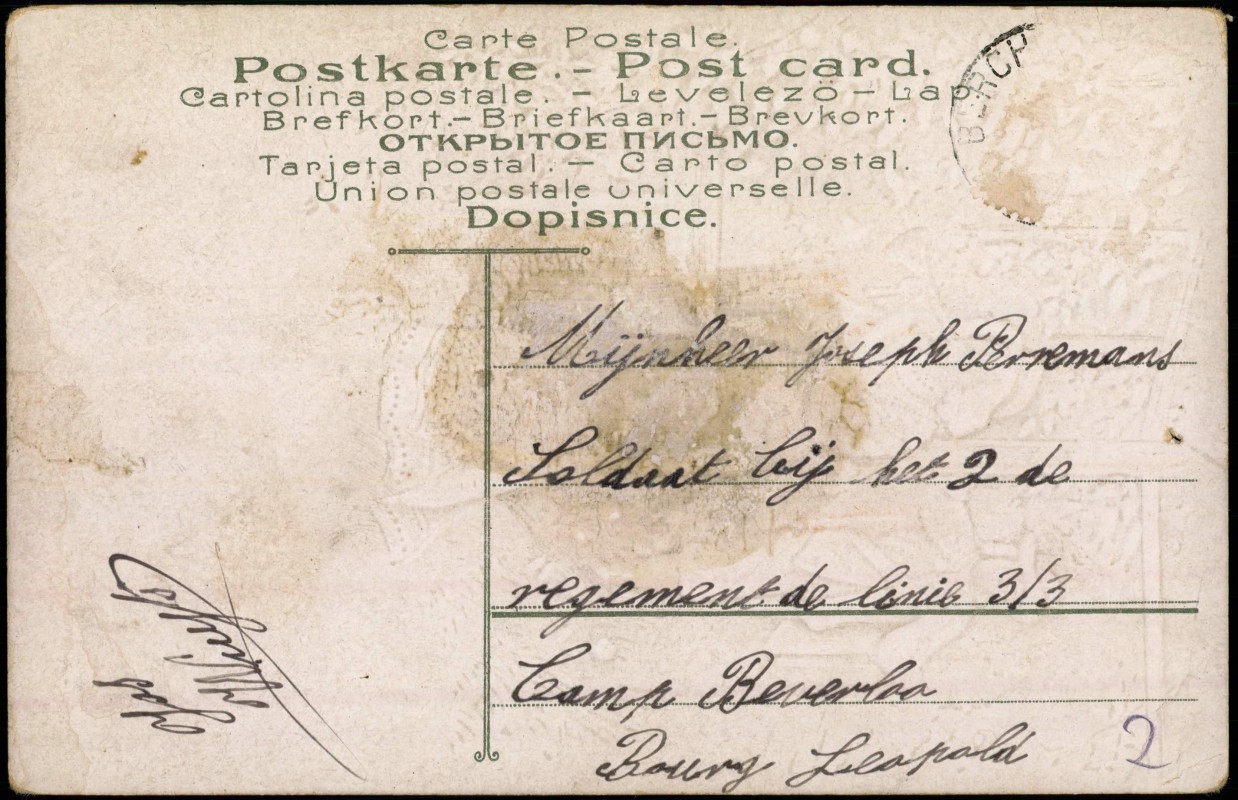 Carte Postale.
Postkarte.- Post card.
Cartolina postale. - Levelezö - Lap
Brefkort.- Briefkaart.- Brevkort.
ОТКРЫТОЕ ПИСЬМО.
Tarjeta postal. - Carto postal.
Union postale universelle.
Dopisnice.
BERCH
Mijnheer Joseph Perremans
Soldaat bij het 2 de
regement de linie 3/3
Camp Beverloo
Bourg Leopold
2